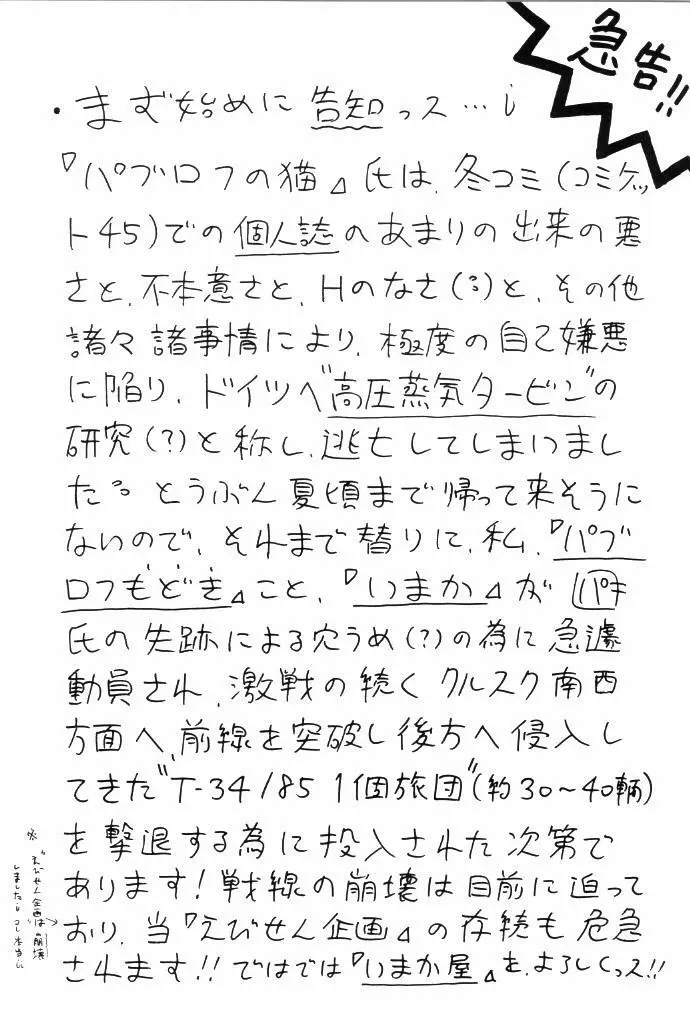 急告!!
・まず始めに告知っス…i
『パブロフの猫』氏は、冬コミ(コミケッ
ト45)での個人誌のあまりの出来の悪
さと、不本意さと、Hのなさ(:)と、その他
諸々諸事情により、極度の自己嫌悪
に陥り、ドイツへ"高圧蒸気タービン"の
研究(?)と称し、逃亡してしまいまし
た:。とうぶん夏頃まで帰って来そうに
ないので、それまで替りに、私、『パブ
ロフもどき』こと、『いまか』が パキ
氏の失跡による穴うめ(?)の為に急遽
動員され、激戦の続くクルスク南西
方面へ、前線を突破し後方へ侵入し
てきた"T-34/85 1個旅団"(約30〜40輌)
を撃退する為に投入された次第で
あります!戦線の崩壊は目前に迫って
おり、当『えびせん企画』の存続も危急
されます!!ではでは『いまか屋』を、よろしくっス!!
※"えびせん企画は崩壊
しましたi コレ本当i